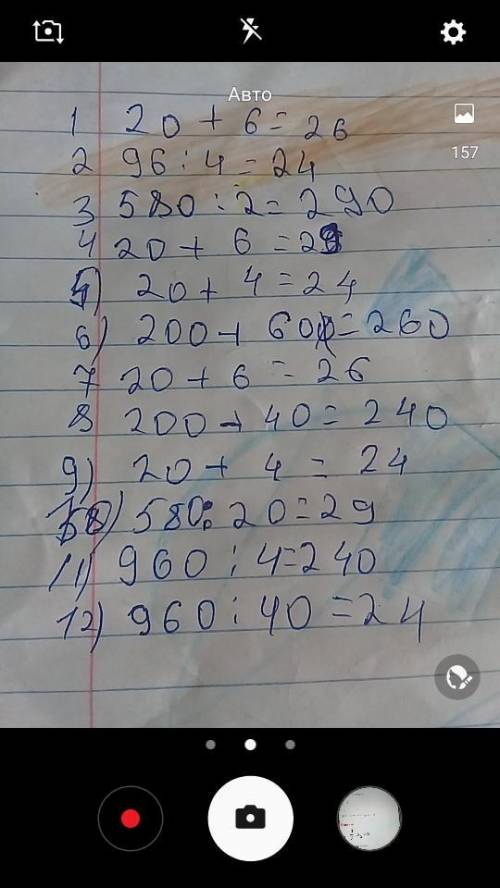 Авто
157
1 20 + 6 = 26
2 96 : 4 = 24
3 580 : 2 = 290
4 20 + 6 = 29
5) 20 + 4 = 24
6) 200 + 60 = 260
7 20 + 6 = 26
8 200 + 40 = 240
9) 20 + 4 = 24
10) 580 : 20 = 29
11) 960 : 4 = 240
12) 960 : 40 = 24